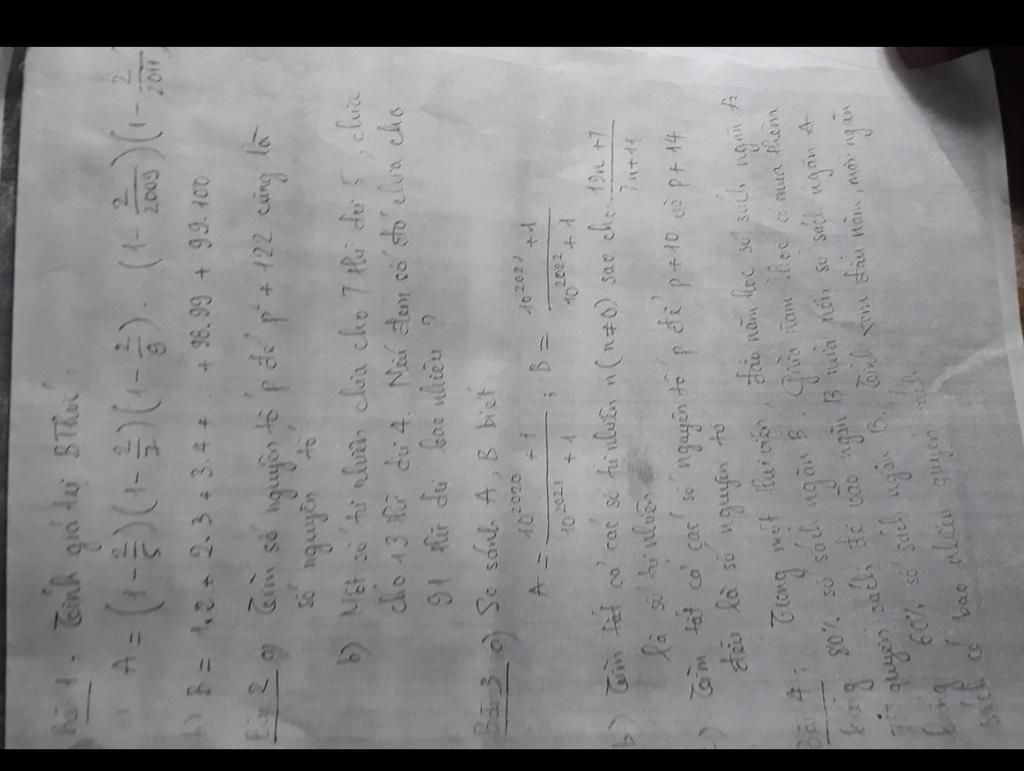 Bài 1: Tính giá trị BThức:
A = (1 - 2/5)(1 - 2/7)(1 - 2/9)... (1 - 2/2009)(1 - 2/2011)
b) B = 1.2 + 2.3 + 3.4 + .. + 98.99 + 99.100
Bài 2 a) Tìm số nguyên tố p để p² + 122 cũng là
số nguyên tố,
b) Một số tự nhiên chia cho 7 thì dư 5, chia
cho 13 thì dư 4. Nếu đem số đó chia cho
91 thì dư bao nhiêu ?
Bài 3 a) So sánh A, B biết
A = (10^2020 + 1)/(10^2021 + 1) ; B = (10^2021 + 1)/(10^2022 + 1)
b) Tìm tất cả các số tự nhiên n (n≠0) sao cho (19n + 7)/(7n + 11)
là số tự nhiên
c) Tìm tất cả các số nguyên tố p để p + 10 và p + 14
đều là số nguyên tố,
Bài 4: Trong một thư viện, đầu năm học số sách ngăn A
bằng 80% số sách ngăn B. Giữa năm học mua thêm
quyển sách để vào ngăn B nữa nên số sách ngăn A
bằng 60% số sách ngăn B. Tính xem đầu năm, mỗi ngăn
sách có bao nhiêu quyển sách